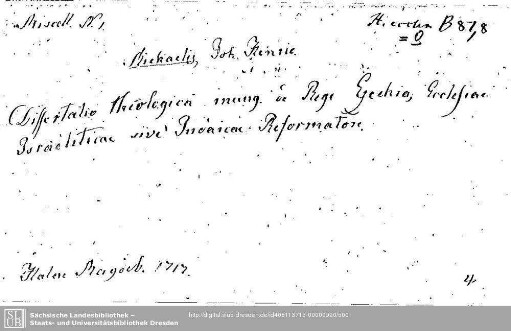 Miscell. N. 1,
Hierchen B 87,8
= 0
Michaelis, Joh. Henric.
Dissertatio theologica inaug. de Rege Ezechia, Ecclesiae
Israeliticae sive Judaicae Reformatore.
Halae Magdeb. 1717.
4.
SLUB
Sächsische Landesbibliothek –
Staats- und Universitätsbibliothek Dresden